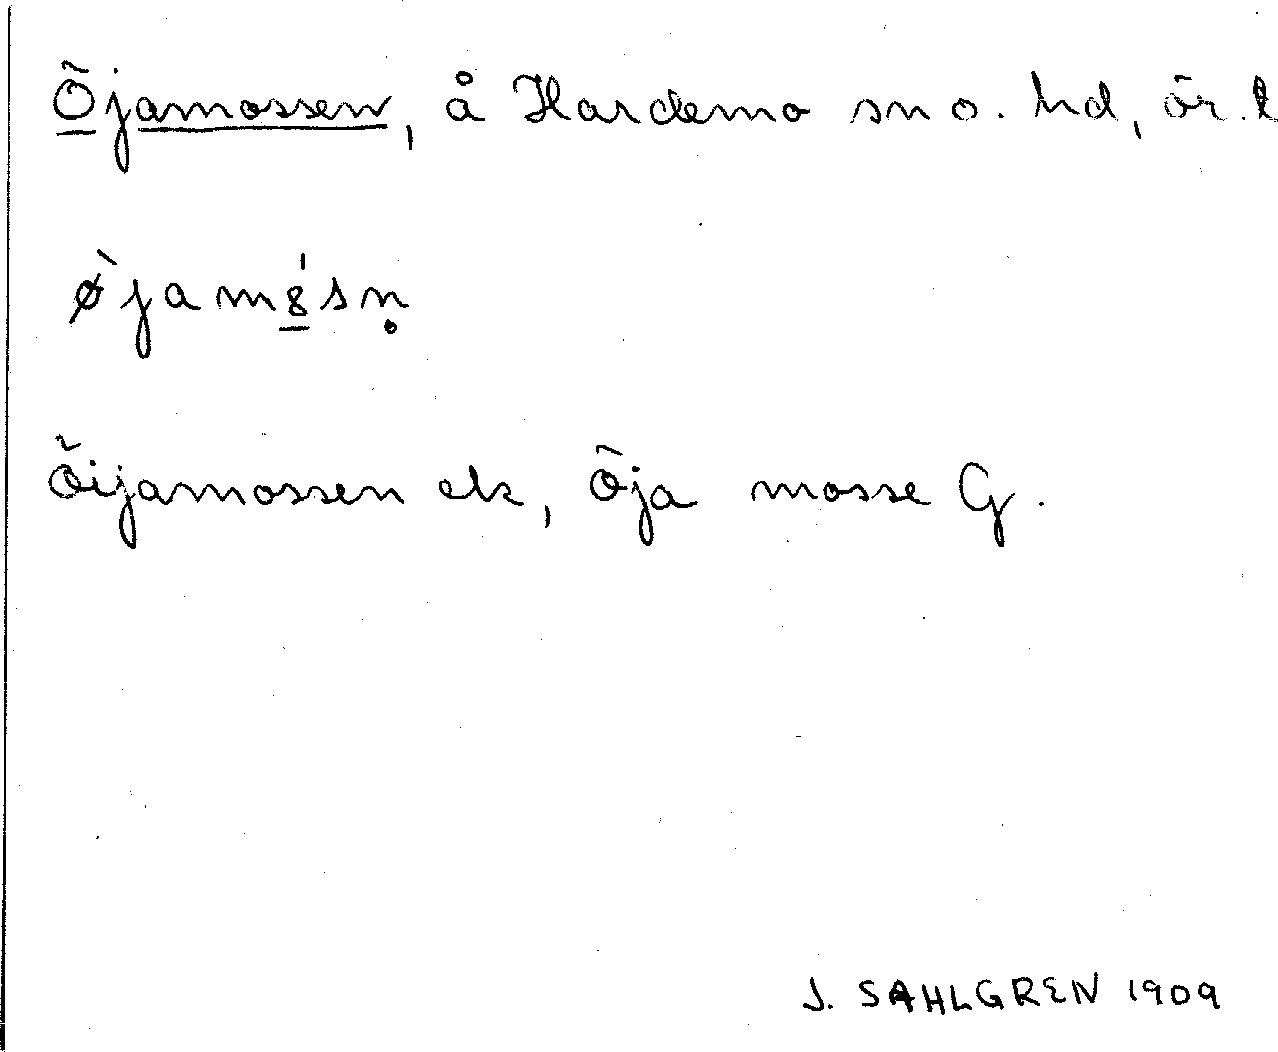 Öjamossen, å Hardemo sn o. hd, ör. l
ø̀jamsn̥
Öijamossen ek, Öja mosse G.
J. SAHLGREN 1909